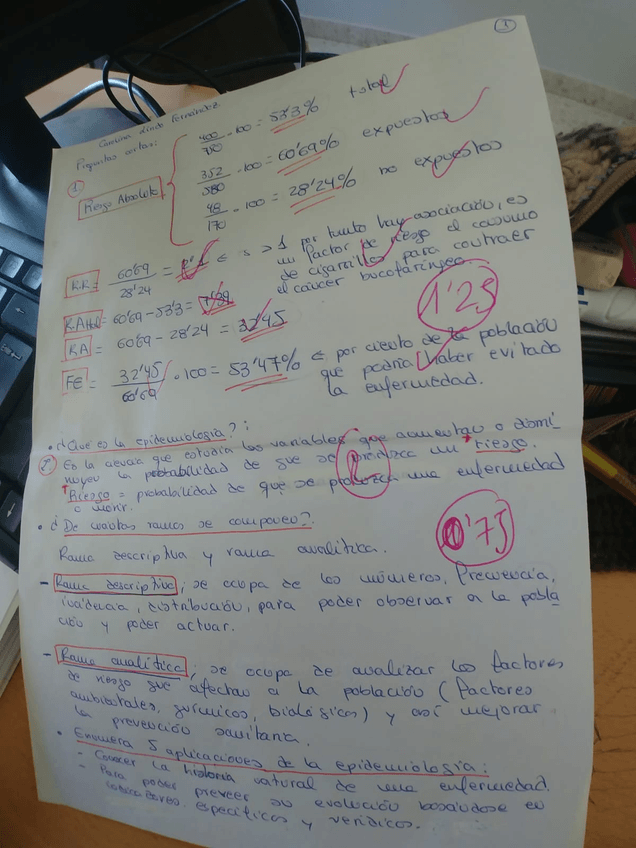 1
Carolina Fernández
Preguntas cortas:
1
Riesgo Absoluto
400/750 · 100 = 53'3% total
352/580 · 100 = 60'69% expuestos
48/170 · 100 = 28'24% no expuestos
RR = 60'69/28'24 = 2'1 ← > 1 por tanto hay asociación, es
un factor de riesgo el consumo
de cigarrillos para contraer
el cáncer bucofaríngeo.
= 60'69 - 53'3 = 7'39
RA = 60'69 - 28'24 = 32'45
1'25
FE = 32'45/60'69 · 100 = 53'47% ← por ciento de la población
que podría haber evitado
la enfermedad.
• ¿Qué es la epidemiología?:
2 Es la ciencia que estudia las variables que aumentan o dismi
nuyen la probabilidad de que se produzca un *riesgo.
*Riesgo = probabilidad de que se produzca una enfermedad
o morir.
• ¿De cuántas ramas se compone?
0'75
Rama descriptiva y rama analítica.
- Rama descriptiva; se ocupa de los números, Prevalencia,
incidencia, distribución, para poder observar a la pobla
ción y poder actuar.
- Rama analítica; se ocupa de analizar los factores
de riesgo que afectan a la población (factores
ambientales, químicos, biológicos) y así mejorar
la prevención sanitaria.
• Enumera 5 aplicaciones de la epidemiología:
- Conocer la historia natural de una enfermedad.
- Para poder prever su evolución basándose en
indicadores específicos y verídicos.